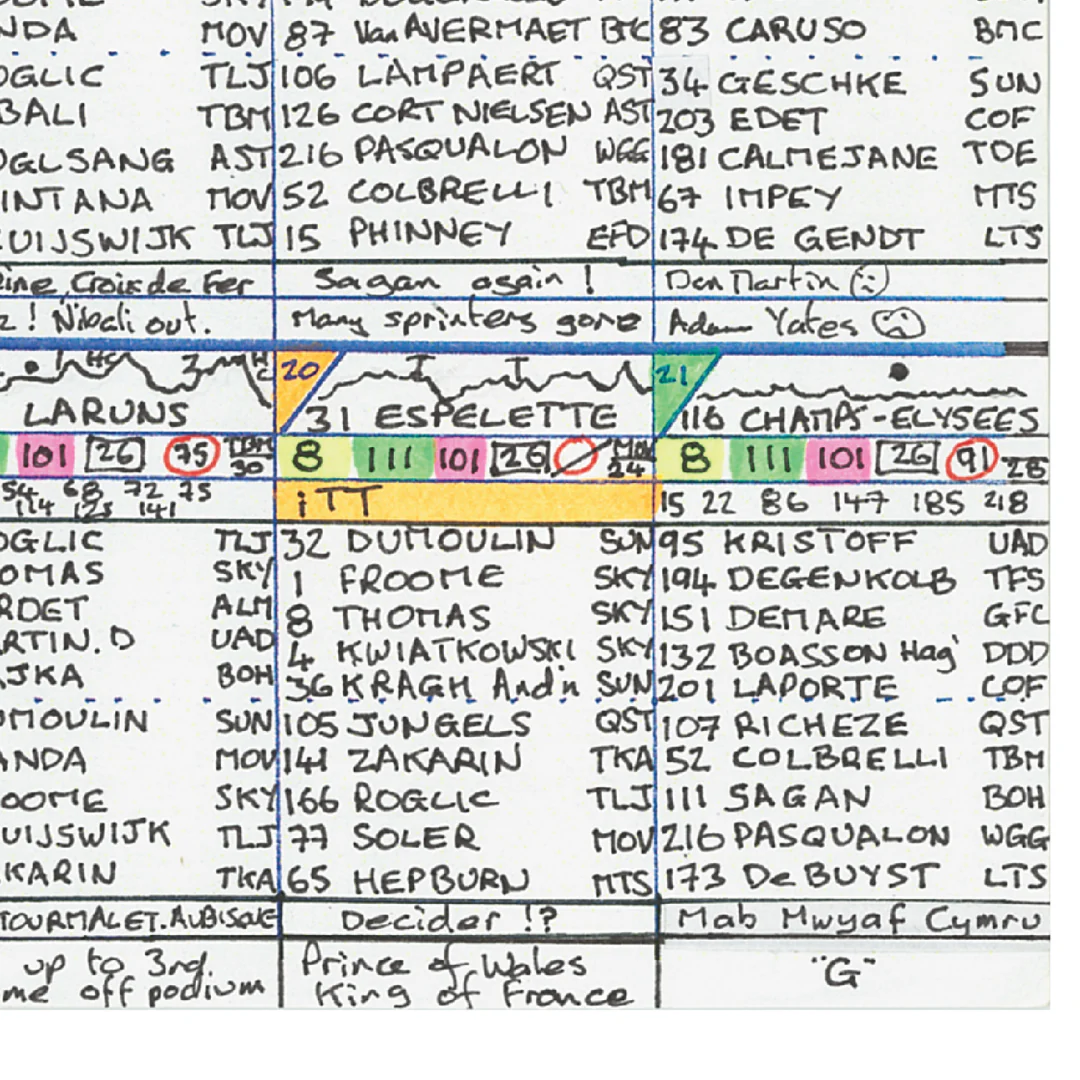 NDA MOV 87 Van AVERMAET BMC 83 CARUSO BMC
OGLIC TLJ 106 LAMPAERT QST 34 GESCHKE SUN
BALI TBM 126 CORT NIELSEN AST 203 EDET COF
OGLSANG AST 216 PASQUALON WGG 181 CALMEJANE TDE
INTANA MOV 52 COLBRELLI TBM 67 IMPEY MTS
UIJSWIJK TLJ 15 PHINNEY EFD 174 DE GENDT LTS
ine, Croix de Fer Sagan again ! Dan Martin
z ! Nibali out. Many sprinters gone Adam Yates
HC 3 HC 20 1 1 21
LARUNS 31 ESPELETTE 116 CHAMPS-ELYSEES
101 26 75 TBM 30 8 111 101 26 MOV 24 8 111 101 26 91 28
54 68 72 75 iTT 15 22 86 147 185 218
114 125 141
OGLIC TLJ 32 DUMOULIN SUN 95 KRISTOFF UAD
OMAS SKY 1 FROOME SKY 194 DEGENKOLB TFS
RDET ALM 8 THOMAS SKY 151 DEMARE GFC
RTIN.D UAD 4 KWIATKOWSKI SKY 132 BOASSON Hag' DDD
JKA BOH 36 KRAGH And'n SUN 201 LAPORTE COF
UMOULIN SUN 105 JUNGELS QST 107 RICHEZE QST
ANDA MOV 141 ZAKARIN TKA 52 COLBRELLI TBM
OOME SKY 166 ROGLIC TLJ 111 SAGAN BOH
UIJSWIJK TLJ 77 SOLER MOV 216 PASQUALON WGG
KARIN TKA 65 HEPBURN MTS 173 De BUYST LTS
TOURMALET.AUBISQUE Decider !? Mab Mwyaf Cymru
up to 3rd. Prince of Wales "G"
me off podium King of France